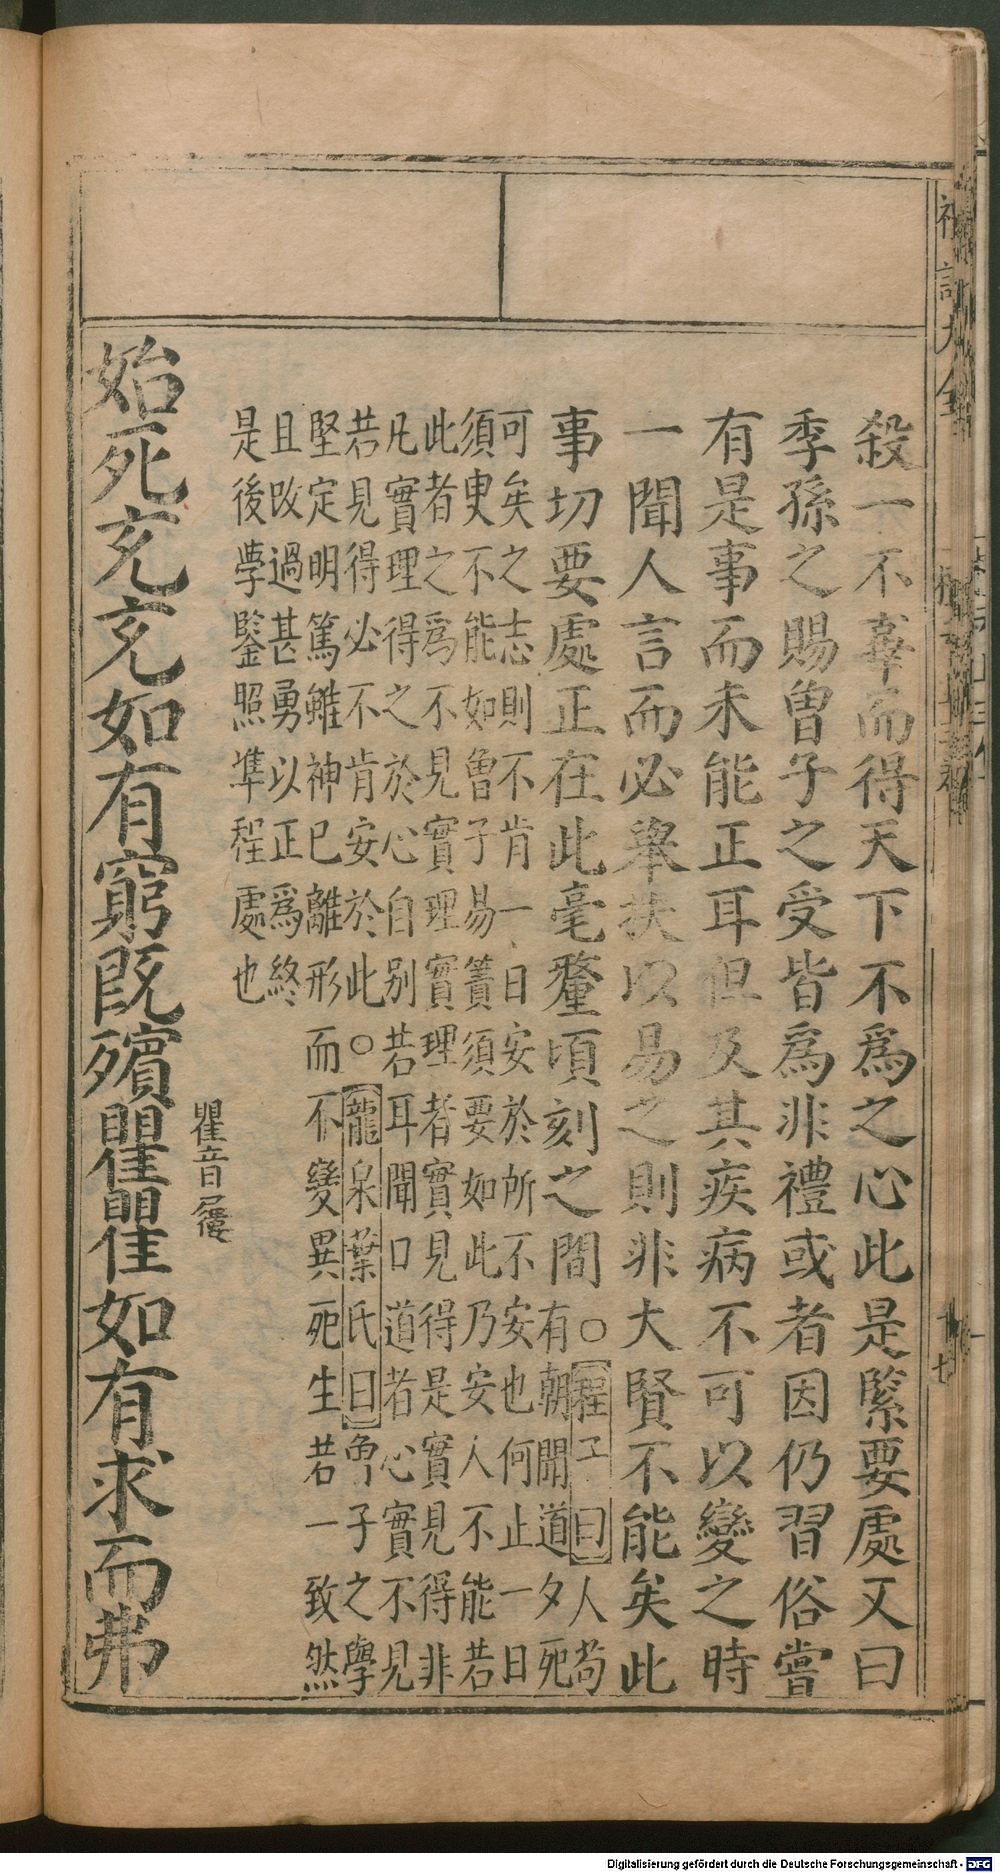 殺一不辜而得天下不爲之心此是緊要處又曰
季孫之賜曾子之受皆爲非禮或者因仍習俗嘗
有是事而未能正耳但及其疾病不可以變之時
一聞人言而必舉扶以易之則非大賢不能矣此
事切要處正在此毫釐頃刻之間○程子曰人苟
有朝聞道夕死
可矣之志則不肯一日安於所不安也何止一日
須臾不能如曾子易簀須要如此乃安人不能若
此者之爲不見實理實理者實見得是實見得非
凡實理得之於心自别若耳聞口道者心實不見
若見得必不肯安於此○龍泉葉氏曰曾子之學
堅定明篤雖神已離形而不變異死生若一致然
且改過甚勇以正爲終
是後學鑒照準程處也
瞿音屨
始死充充如有窮既殯瞿瞿如有求而弗
禮記大全
十七
Digitalisierung gefördert durch die Deutsche Forschungsgemeinschaft - DFG